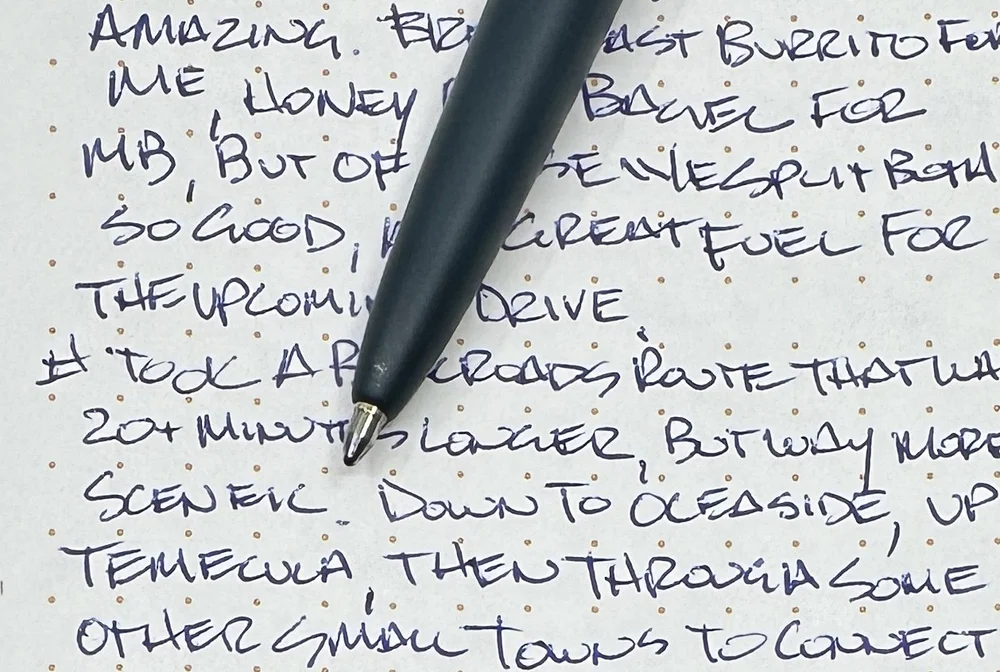 AMAZING. BREAKFAST BURRITO FOR
ME, HONEY BAGEL FOR
MB, BUT OF COURSE WE SPLIT BOTH
SO GOOD, GREAT FUEL FOR
THE UPCOMING DRIVE
# TOOK A BACKROADS ROUTE THAT WA
20+ MINUTES LONGER, BUT WAY MORE
SCENEIC. DOWN TO OCEASIDE, UP
TEMECULA, THEN THROUGH SOME
OTHER SMALL TOWNS TO CONNECT